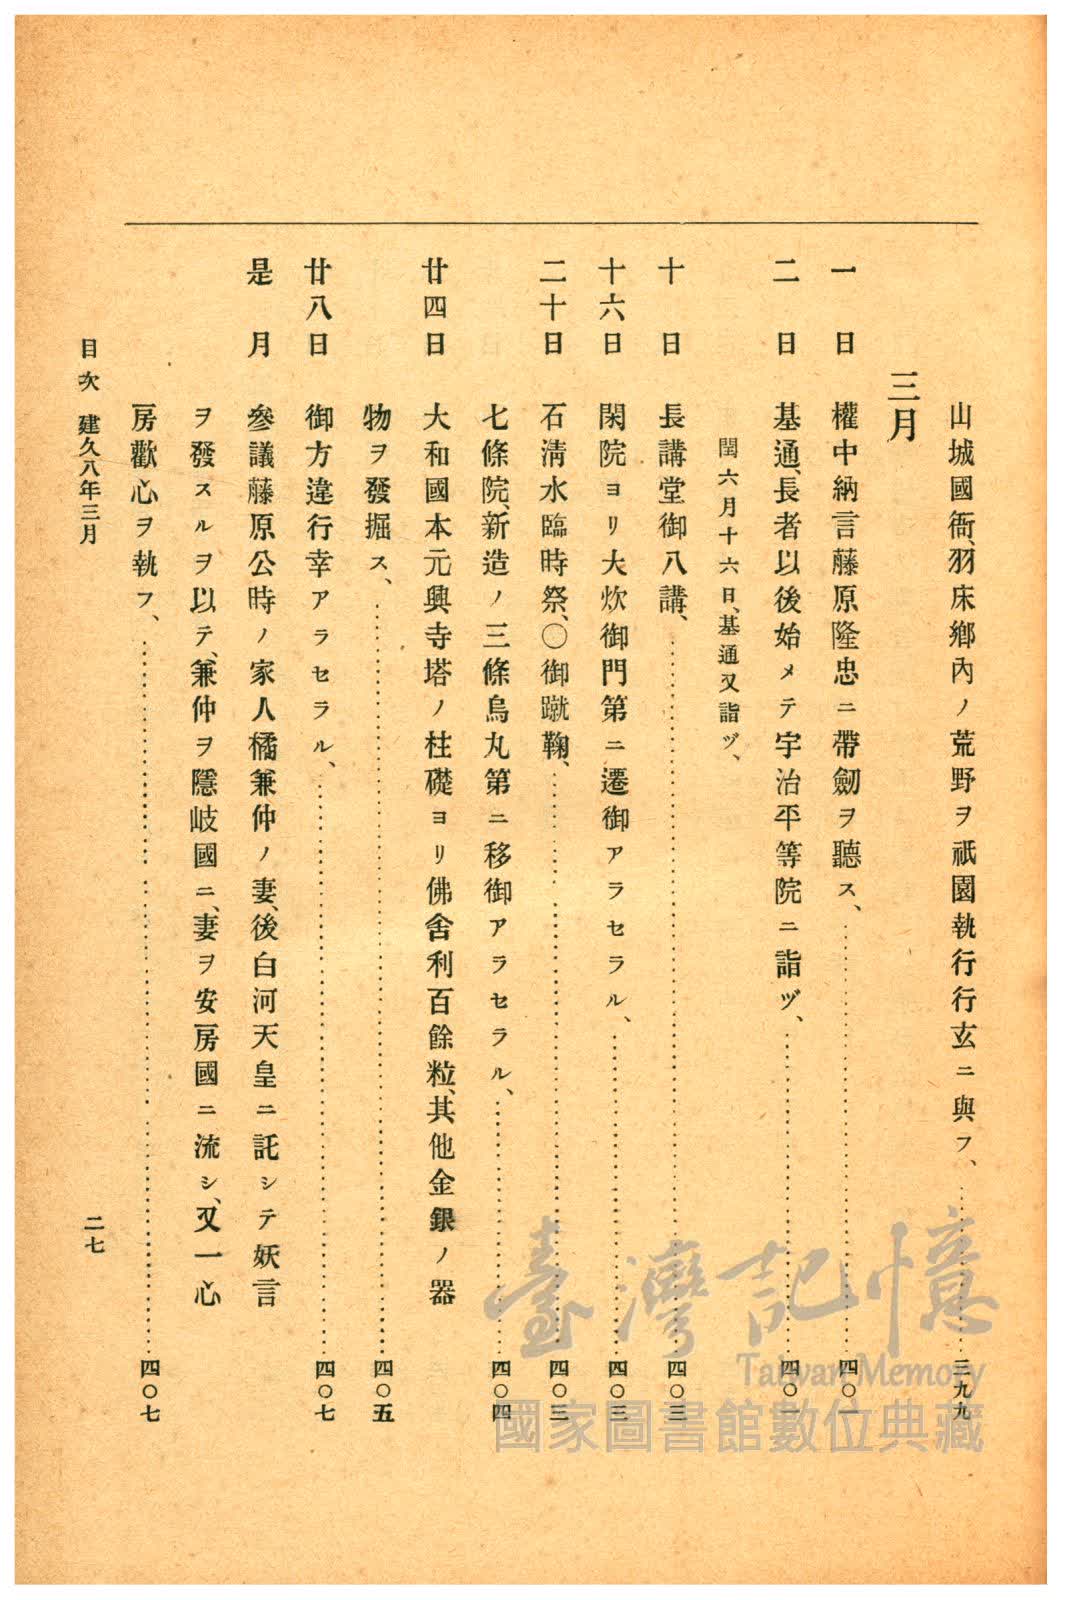 山城國衙、羽床鄕內ノ荒野ヲ祇園執行行玄ニ與フ、……三九九
三月
一日　權中納言藤原隆忠ニ帶劒ヲ聽ス、……四〇一
二日　基通、長者以後始メテ宇治平等院ニ詣ヅ、……四〇一
閏六月十六日、基通又詣ヅ、
十日　長講堂御八講、……四〇三
十六日　閑院ヨリ大炊御門第ニ遷御アラセラル、……四〇三
二十日　石淸水臨時祭、〇御蹴鞠、……四〇三
七條院、新造ノ三條烏丸第ニ移御アラセラル、……四〇四
廿四日　大和國本元興寺塔ノ柱礎ヨリ佛舍利百餘粒、其他金銀ノ器
物ヲ發掘ス、……四〇五
廿八日　御方違行幸アラセラル、……四〇七
是月　參議藤原公時ノ家人橘兼仲ノ妻、後白河天皇ニ託シテ妖言
ヲ發スルヲ以テ、兼仲ヲ隱岐國ニ、妻ヲ安房國ニ流シ、又一心
房歡心ヲ執フ、……四〇七
目次　建久八年三月　二七
臺灣記憶
Taiwan Memory
國家圖書館數位典藏